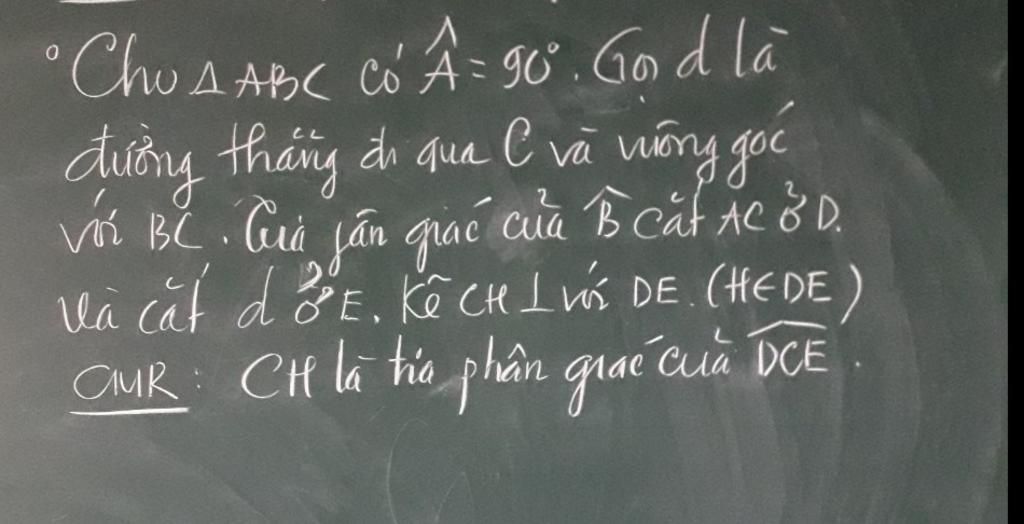 ° Cho △ ABC có Â = 90°. Gọi d là
đường thẳng đi qua C và vuông góc
với BC. phân giác của B̂ cắt AC ở D.
và cắt d ở E. Kẽ CH ⊥ với DE. (H∈DE)
CMR: CH là tia phân giác của \widehat{DCE}.